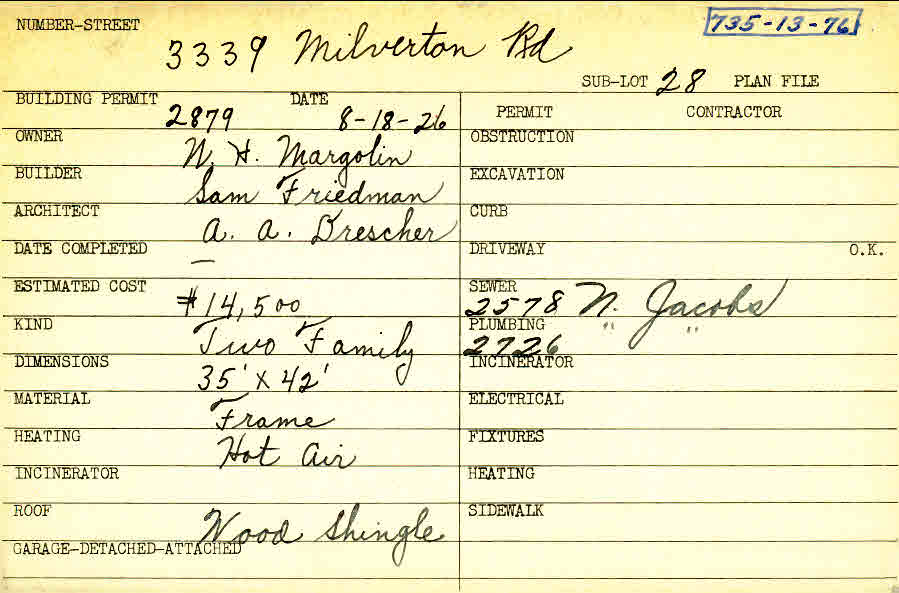 NUMBER-STREET 3339 Milverton Rd 735-13-76
SUB-LOT 28 PLAN FILE
BUILDING PERMIT 2879 DATE 8-18-26
OWNER N. H. Margolin
BUILDER Sam Friedman
ARCHITECT A. A. Drescher
DATE COMPLETED —
ESTIMATED COST $14,500
KIND Two Family
DIMENSIONS 35' x 42'
MATERIAL Frame
HEATING Hot Air
INCINERATOR
ROOF Wood Shingle
GARAGE-DETACHED-ATTACHED
PERMIT CONTRACTOR
OBSTRUCTION
EXCAVATION
CURB
DRIVEWAY O.K.
SEWER 2578 N. Jacobs
PLUMBING 2726 " "
INCINERATOR
ELECTRICAL
FIXTURES
HEATING
SIDEWALK